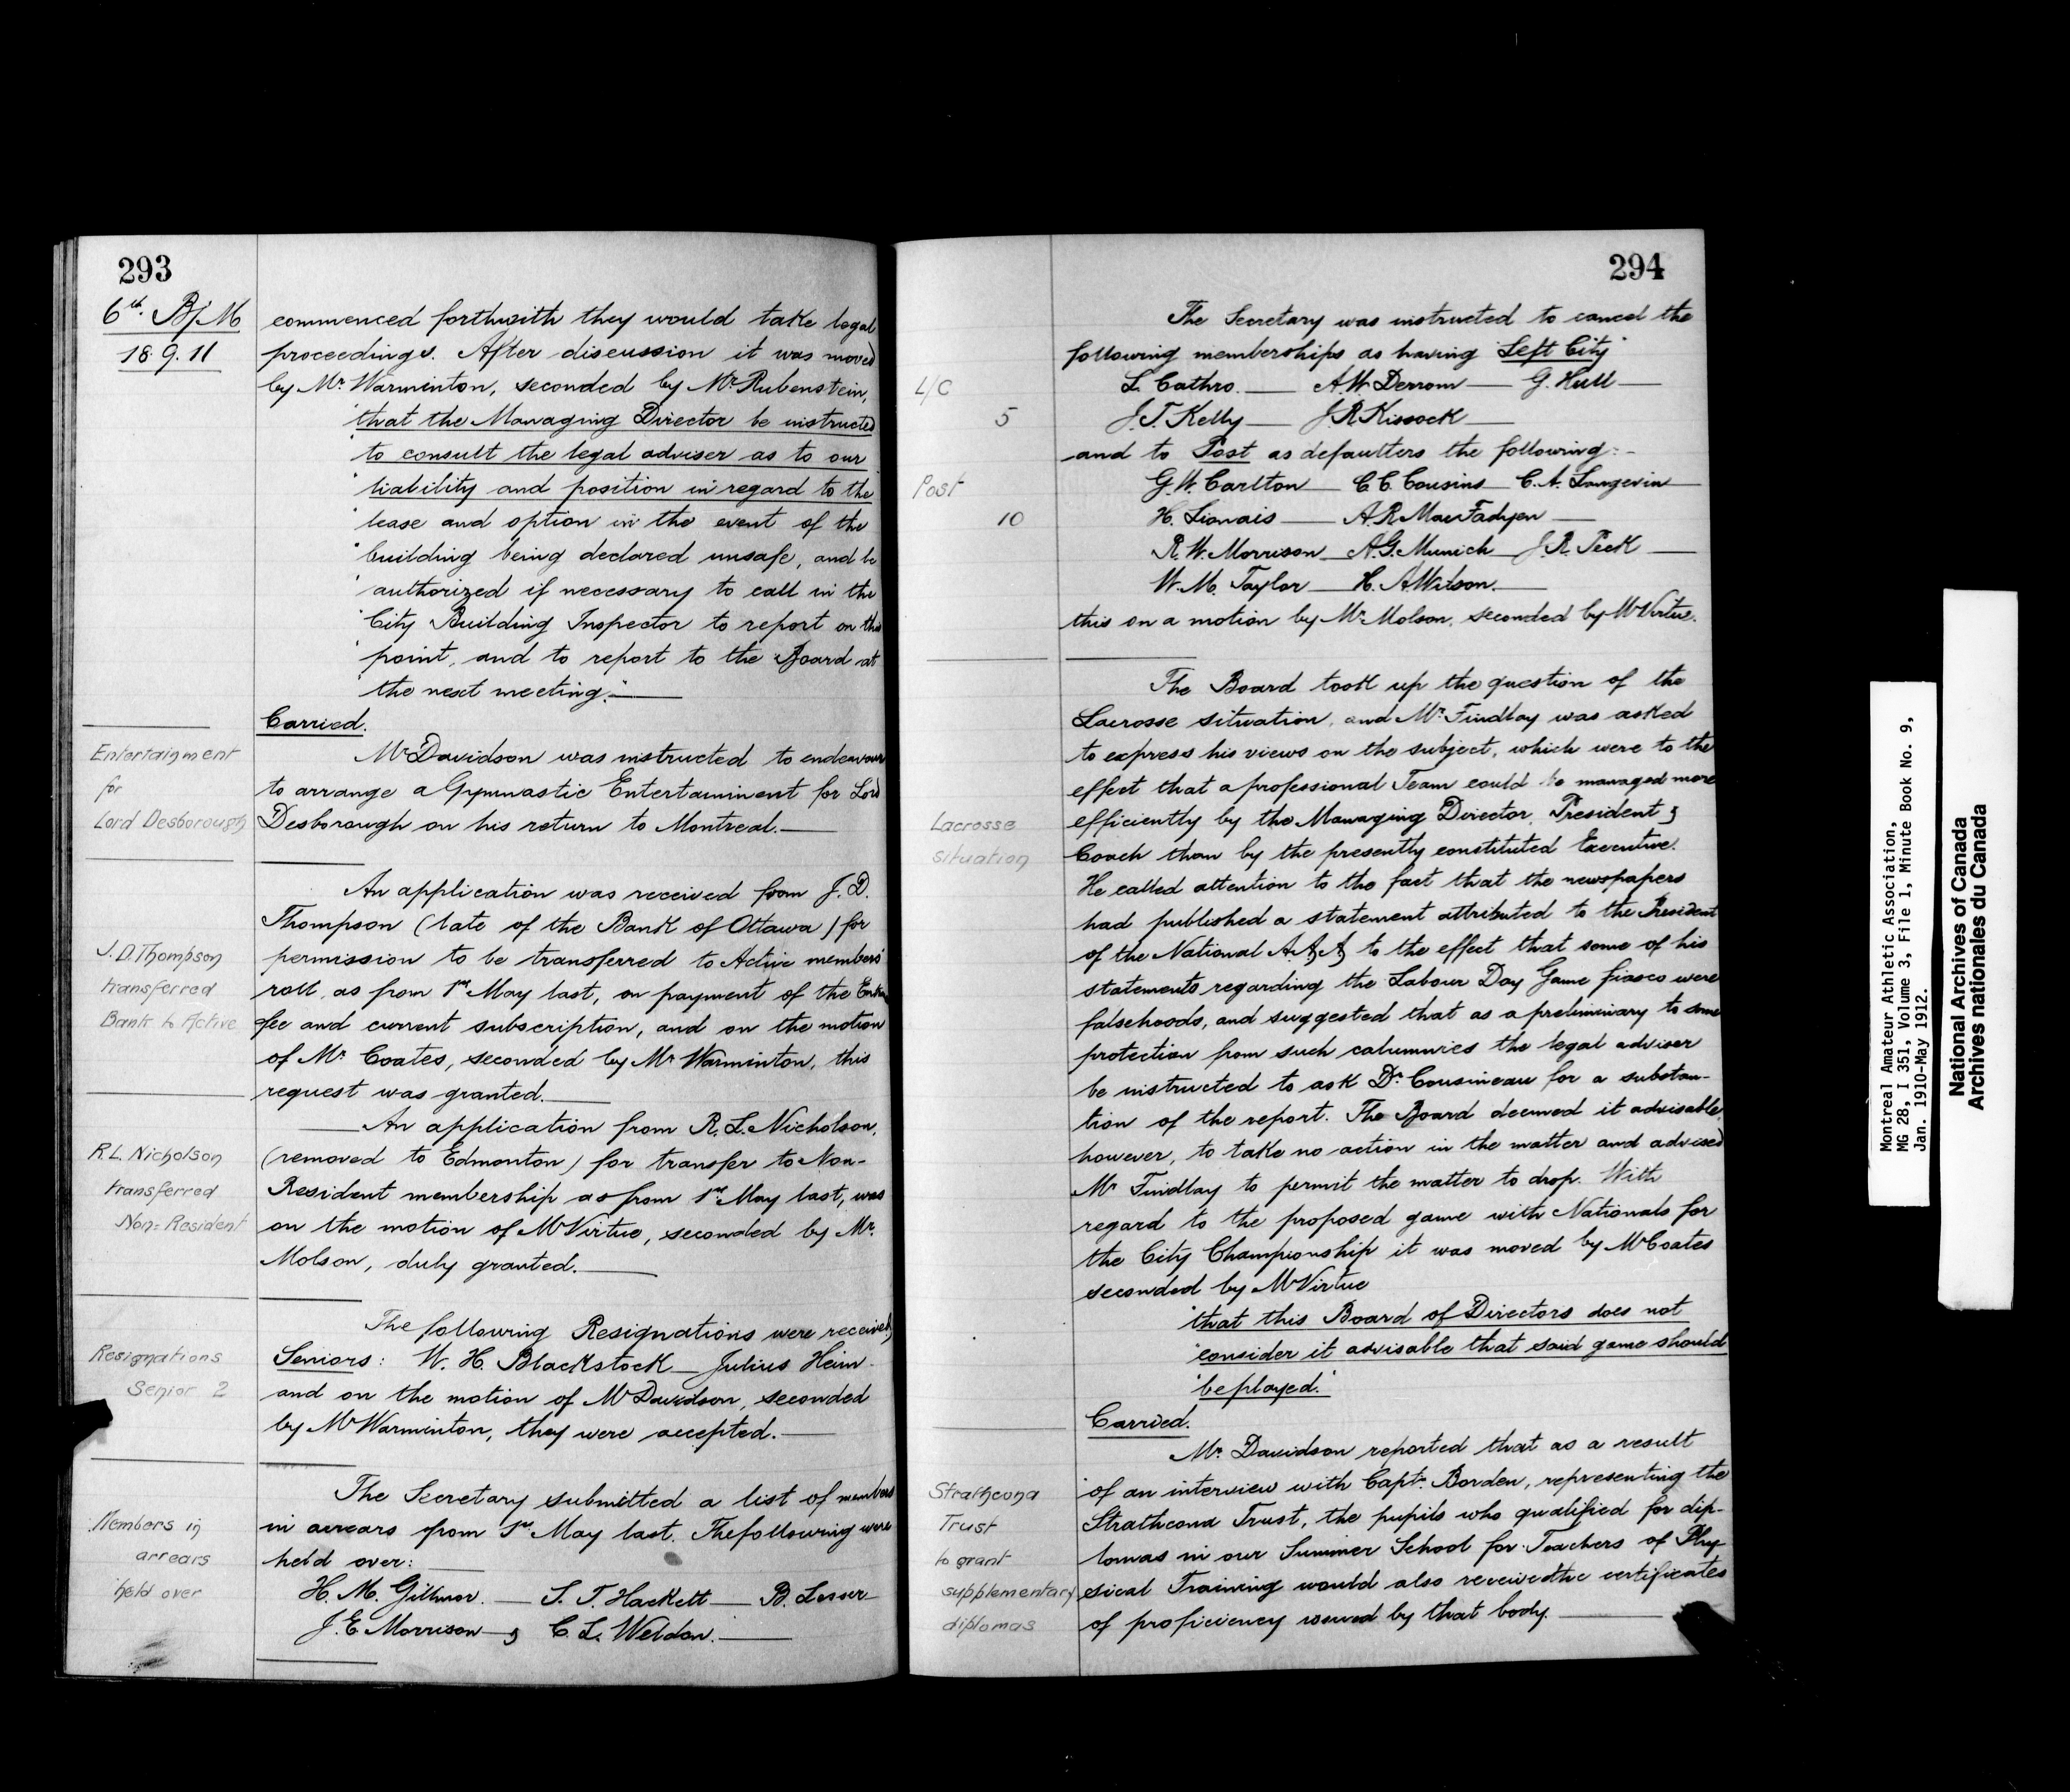 293
6th. B/M
18.9.11
commenced forthwith they would take legal
proceedings. After discussion it was moved
by Mr. Warminton, seconded by Mr Rubenstein,
"that the Managing Director be instructed
"to consult the legal adviser as to our
"liability and position in regard to the
"lease and option in the event of the
"building being declared unsafe, and be
"authorized if necessary to call in the
"City Building Inspector to report on this
"point, and to report to the Board at
"the next meeting."
Carried.
Entertainment
for
Lord Desborough
Mr Davidson was instructed to endeavour
to arrange a Gymnastic Entertainment for Lord
Desborough on his return to Montreal.
J. D. Thompson
transferred
Bank to Active
An application was received from J. D.
Thompson (late of the Bank of Ottawa) for
permission to be transferred to Active members'
roll, as from 1st May last, on payment of the
fee and current subscription, and on the motion
of Mr. Coates, seconded by Mr Warminton, this
request was granted.
R.L. Nicholson
transferred
Non-Resident
An application from R. L. Nicholson,
(removed to Edmonton) for transfer to Non-
Resident membership as from 1st May last, was
on the motion of Mr Virtue, seconded by Mr.
Molson, duly granted.
Resignations
Senior 2
The following Resignations were received,
Seniors: W. H. Blackstock Julius Heim
and on the motion of Mr Davidson, seconded
by Mr Warminton, they were accepted.
Members in
arrears
held over
The Secretary submitted a list of members
in arrears from 1st May last. The following were
held over:
H. M. Gilmor. S. T. Hackett B. Lesser
J. E. Morrison & C. L. Weldon.
294
The Secretary was instructed to cancel the
following memberships as having "Left City"
L/C
5
L. Cathro. A. W. Derrom G. Hull
J. T. Kelly J. R. Kissock
and to Post as defaulters the following:-
Post
10
G. W. Carlton C. C. Cousins C. A. Langevin
H. Lionais A. R. MacFadyen
R. W. Morrison A. G. Munich J. R. Peck
W. M. Taylor H. A. Wilson.
this on a motion by Mr. Molson, seconded by Mr Virtue.
Lacrosse
situation
The Board took up the question of the
Lacrosse situation, and Mr. Findlay was asked
to express his views on the subject, which were to the
effect that a professional Team could be managed more
efficiently by the Managing Director, President &
Coach than by the presently constituted Executive.
He called attention to the fact that the newspapers
had published a statement attributed to the President
of the National A.A.A. to the effect that some of his
statements regarding the Labour Day Game fiasco were
falsehoods, and suggested that as a preliminary to some
protection from such calumnies the legal adviser
be instructed to ask Dr. Cousineau for a substan-
tion of the report. The Board deemed it advisable
however, to take no action in the matter and advised
Mr Findlay to permit the matter to drop. With
regard to the proposed game with Nationals for
the City Championship it was moved by Mr Coates
seconded by Mr Virtue
"that this Board of Directors does not
"consider it advisable that said game should
"be played."
Carried.
Strathcona
Trust
to grant
supplementary
diplomas
Mr. Davidson reported that as a result
of an interview with Capt. Borden, representing the
Strathcona Trust, the pupils who qualified for dip-
lomas in our Summer School for Teachers of Phy-
sical Training would also receive the certificates
of proficiency issued by that body.
Montreal Amateur Athletic Association,
MG 28, I 351, Volume 3, File 1, Minute Book No. 9,
Jan. 1910-May 1912.
National Archives of Canada
Archives nationales du Canada